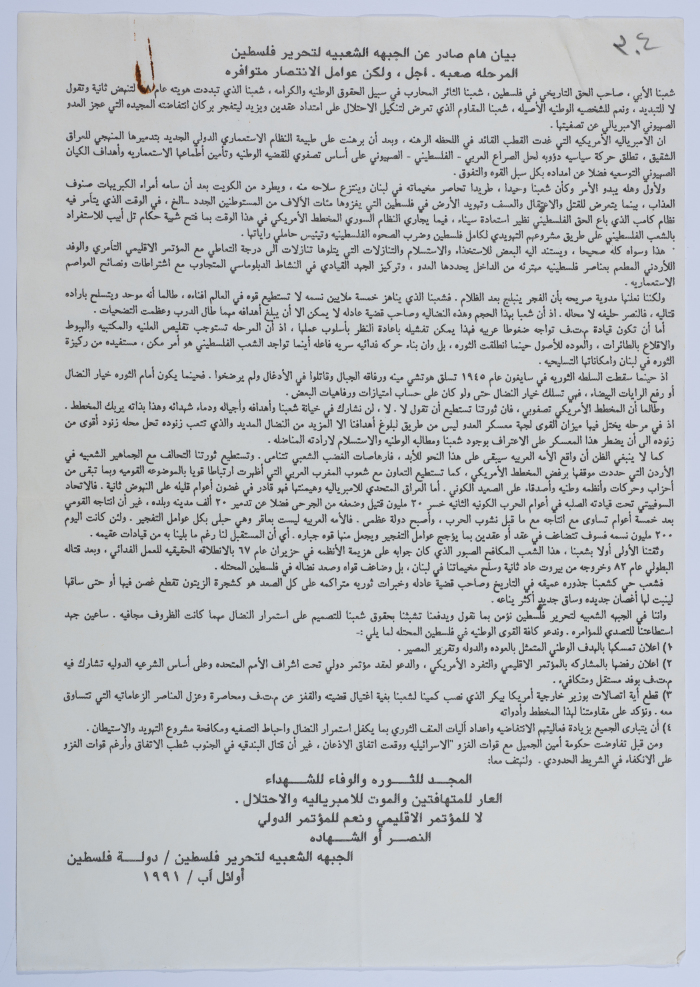 ٢٠٤
بيان هام صادر عن الجبهه الشعبيه لتحرير فلسطين
المرحله صعبه . اجل ، ولكن عوامل الانتصار متوافره
شعبنا الأبي ، صاحب الحق التاريخي في فلسطين ، شعبنا الثائر المحارب في سبيل الحقوق الوطنيه والكرامه ، شعبنا الذي تبددت هويته عام لتنهض ثانية وتقول
لا للتبديد ، ونعم للشخصيه الوطنيه الأصيله ، شعبنا المقاوم الذي تعرض لتنكيل الاحتلال على امتداد عقدين ويزيد ليتفجر بركان انتفاضته المجيده التي عجز العدو
الصهيوني الامبريالي عن تصفيتها .
ان الامبرياليه الأمريكيه التي غدت القطب القائد في اللحظه الرهنه ، وبعد أن برهنت على طبيعة النظام الاستعماري الدولي الجديد بتدميرها المنهجي للعراق
الشقيق ، تطلق حركة سياسيه دؤوبه لحل الصراع العربي - الفلسطيني - الصهيوني على أساس تصفوي للقضيه الوطنيه وتأمين أطماعها الاستعماريه وأهداف الكيان
الصهيوني التوسعيه فضلا عن امداده بكل سبل القوه والتفوق .
ولأول وهله يبدو الأمر وكأن شعبنا وحيدا ، طريدا تحاصر مخيماته في لبنان وينتزع سلاحه منه ، ويطرد من الكويت بعد أن سامه أمراء الكبريهات صنوف
العذاب ، بينما يتعرض للقتل والاعتقال والعسف وتهويد الأرض في فلسطين التي يغزوها مئات الآلاف من المستوطنين الجدد ..الخ ، في الوقت الذي يتآمر فيه
نظام كامب الذي باع الحق الفلسطيني نظير استعادة سيناء ، فيما يجاري النظام السوري المخطط الأمريكي في هذا الوقت بما فتح شهية حكام تل أبيب للاستفراد
بالشعب الفلسطيني على طريق مشروعهم التهويدي لكامل فلسطين وضرب الصحوه الفلسطينيه وتيئيس حاملي راياتها .
هذا وسواه كله صحيحا ، ويستند اليه البعض للاستخذاء والاستسلام والتنازلات التي يتلوها تنازلات الى درجة التعاطي مع المؤتمر الاقليمي التآمري والوفد
اللأردني المطعم بعناصر فلسطينيه مبتره عن الداخل يحددها العدو ، وتركيز الجهد القيادي في النشاط الدبلوماسي المتجاوب مع اشتراطات ونصائح العواصم
الاستعماريه .
ولكننا نعلنها مدوية صريحه بأن الفجر ينبلج بعد الظلام . فشعبنا الذي يناهز خمسة ملايين نسمه لا تستطيع قوه في العالم افناءه ، طالما أنه موحد ويتسلح باراده
قتاليه ، فالنصر حليفه لا محاله . اذ أن شعبا بهذا الحجم وهذه النضاليه وصاحب قضية عادله لا يمكن الا أن يبلغ أهدافه مهما طال الدرب وعظمت التضحيات .
أما أن تكون قيادة م.ت.ف تواجه ضغوطا عربيه فهذا يمكن تفشيله باعادة النظر بأسلوب عملها ، اذ أن المرحله تستوجب تقليص العلنيه والمكتبيه والهبوط
والاقلاع بالطائرات ، والعوده للأصول حينما انطلقت الثوره ، بل وان بناء حركه فدائيه سريه فاعله أينما تواجد الشعب الفلسطيني هو أمر ممكن ، مستفيده من ركيزة
الثوره في لبنان وامكاناتها التسليحيه .
اذ حينما سقطت السلطه الثوريه في سايغون عام ١٩٤٥ تسلق هوتشي مينه ورفاقه الجبال وقاتلوا في الأدغال ولم يرضخوا . فحينما يكون أمام الثوره خيار النضال
أو رفع الرايات البيضاء ، فهي تسلك خيار النضال حتى ولو كان على حساب امتيازات ورفاهيات البعض .
وطالما أن المخطط الأمريكي تصفوي ، فان ثورتنا تستطيع أن تقول لا . لا ، لن نشارك في خيانة شعبنا وأهدافه وأجياله ودماء شهدائه وهذا بذاته يربك المخطط .
اذ في مرحلة يختل فيها ميزان القوى لجهة معسكر العدو ليس من طريق لبلوغ أهدافنا الا المزيد من النضال المديد والذي تتعب زنوده تحل محله زنود أقوى من
زنوده الى أن يضطر هذا المعسكر على الاعتراف بوجود شعبنا ومطالبه الوطنيه والاستسلام لارادته المناضله .
كما لا ينبغي الظن أن واقع الأمه العربيه سيبقى على هذا النحو للأبد ، فارهاصات الغضب الشعبي تتنامى . وتستطيع ثورتنا التحالف مع الجماهير الشعبيه في
الأردن التي حددت موقفها برفض المخطط الأمريكي ، كما تستطيع التعاون مع شعوب المغرب العربي التي أظهرت ارتباطا قويا بالموضوعه القوميه وبما تبقى من
أحزاب وحركات وأنظمه وطنيه وأصدقاء على الصعيد الكوني . أما العراق المتحدي للامبرياليه وهيمنتها فهو قادر في غضون أعوام قليله على النهوض ثانية . فالاتحاد
السوفييتي تحت قيادته الصلبه في أعوام الحرب الكونيه الثانيه خسر ٣٠ مليون قتيل وضعفه من الجرحى فضلا عن تدمير ٢٠ ألف مدينه وبلده ، غير أن انتاجه القومي
بعد خمسة أعوام تساوى مع انتاجه مع ما قبل نشوب الحرب ، وأصبح دولة عظمى . فالأمه العربيه ليست بعاقر وهي حبلى بكل عوامل التفجير . ولئن كانت اليوم
٢٠٠ مليون نسمه فسوف تتضاعف في عقد أو عقدين بما يؤجج عوامل التفجير ويجعل منها قوه جباره . أي أن المستقبل لنا رغم ما بلينا به من قيادات عقيمه .
وثقتنا الأولى أولا بشعبنا ، هذا الشعب المكافح الصبور الذي كان جوابه على هزيمة الأنظمه في حزيران عام ٦٧ بالانطلاقه الحقيقيه للعمل الفدائي ، وبعد قتاله
البطولي عام ٨٢ وخروجه من بيروت عاد ثانية وسلح مخيماتنا في لبنان ، بل وضاعف قواه وصعد نضاله في فلسطين المحتله .
فشعب حي كشعبنا جذوره عميقه في التاريخ وصاحب قضية عادله وخبرات ثوريه متراكمه على كل الصعد هو كشجرة الزيتون تقطع غصن فيها أو حتى ساقها
لينبت لها أغصان جديده وساق جديد أكثر يناعه .
واننا في الجبهه الشعبيه لتحرير فلسطين نؤمن بما نقول ويدفعنا تشبثنا بحقوق شعبنا للتصميم على استمرار النضال مهما كانت الظروف مجافيه . ساعين جهد
استطاعتنا للتصدي للمؤامره . وندعو كافة القوى الوطنيه في فلسطين المحتله لما يلي :-
١) اعلان تمسكها بالهدف الوطني المتمثل بالعوده والدوله وتقرير المصير .
٢) اعلان رفضها بالمشاركه بالمؤتمر الاقليمي والتفرد الأمريكي ، والدعو لعقد مؤتمر دولي تحت اشراف الأمم المتحده وعلى أساس الشرعيه الدوليه تشارك فيه
م.ت.ف بوفد مستقل ومتكافيء .
٣) قطع أية اتصالات بوزير خارجية أمريكا بيكر الذي نصب كمينا لشعبنا بغية اغتيال قضيته والقفز عن م.ت.ف ومحاصرة وعزل العناصر الزعاماتيه التي تتساوق
معه . ونؤكد على مقاومتنا لهذا المخطط وأدواته
٤) أن يتبارى الجميع بزيادة فعاليتهم الانتفاضيه واعداد آليات العنف الثوري بما يكفل استمرار النضال واحباط التصفيه ومكافحة مشروع التهويد والاستيطان .
ومن قبل تفاوضت حكومة أمين الجميل مع قوات الغزو "الاسرائيليه ووقعت اتفاق الاذعان ، غير أن قتال البندقيه في الجنوب شطب الاتفاق وأرغم قوات الغزو
على الانكفاء في الشريط الحدودي . ولنهتف معا:
المجد للثوره والوفاء للشهداء
العار للمتهافتين والموت للامبرياليه والاحتلال .
لا للمؤتمر الاقليمي ونعم للمؤتمر الدولي
النصر أو الشهاده
الجبهه الشعبيه لتحرير فلسطين / دولة فلسطين
أوائل آب / ١٩٩١